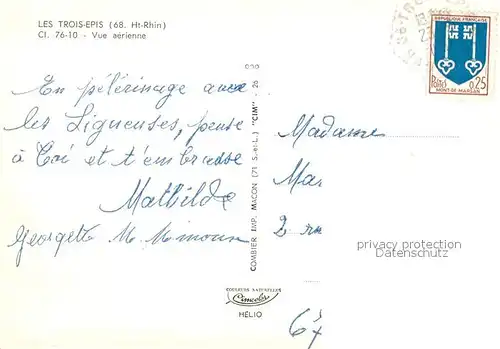 LES TROIS-EPIS (68. Ht-Rhin)
Cl. 76-10 - Vue aérienne
En pélérinage avec
les Ligueuses, pense
à Toi et t'embrasse
Mathilde
Georgette M.
COMBIER IMP. MACON (71 S.-et-L.) "CIM"
26
COULEURS NATURELLES
Cimcolor
HÉLIO
REPUBLIQUE FRANCAISE
Postes 0,25
MONT-DE-MARSAN
Madame
Mar
2 ru
privacy protection
Datenschutz